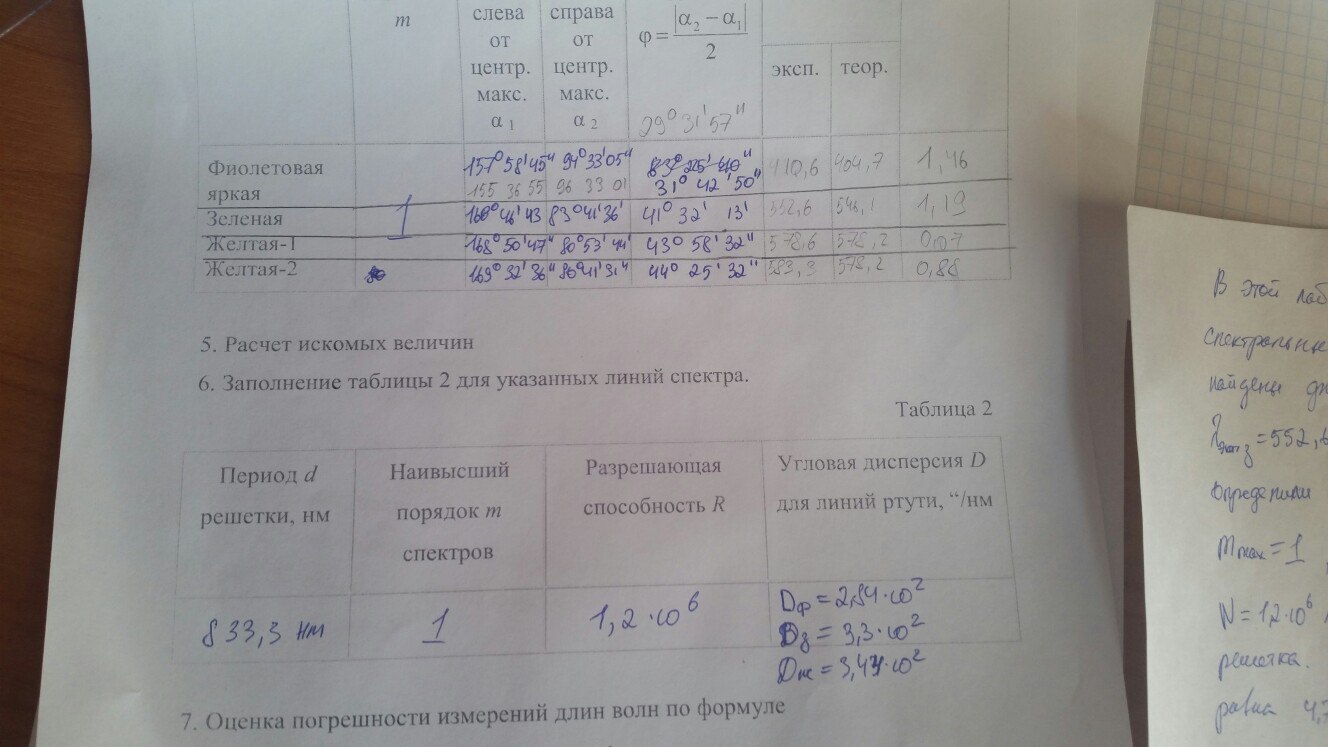 m
слева от центр. макс. α 1
справа от центр. макс. α 2
φ = |α2 – α1| / 2
эксп.
теор.
29° 31' 57"
Фиолетовая яркая
1
157° 58' 45" 94° 33' 05"
155 36 55 96 33 01
31° 42' 50"
410,6 404,7 1,46
Зеленая
83° 41' 36' 41° 32' 13'
552,6 546,1 1,19
Желтая-1
168° 50' 47" 80° 53' 44' 43° 58' 32" 578,6 578,2 0,07
Желтая-2
169° 32' 36" 80° 41' 31" 44° 25' 32" 583,3 578,2 0,88
5. Расчет искомых величин
6. Заполнение таблицы 2 для указанных линий спектра.
Таблица 2
Период d решетки, нм
Наивысший порядок m спектров
Разрешающая способность R
Угловая дисперсия D для линий ртути, “/нм
833,3 нм
1
1,2·10⁶
Dф = 2,84·10²
Dз = 3,3·10²
Dж = 3,44·10²
7. Оценка погрешности измерений длин волн по формуле
В этой лаб
спектральные
найдены
=552,6
определили
mmax = 1
N = 1,2·10⁶
решетка.
равна 4,7